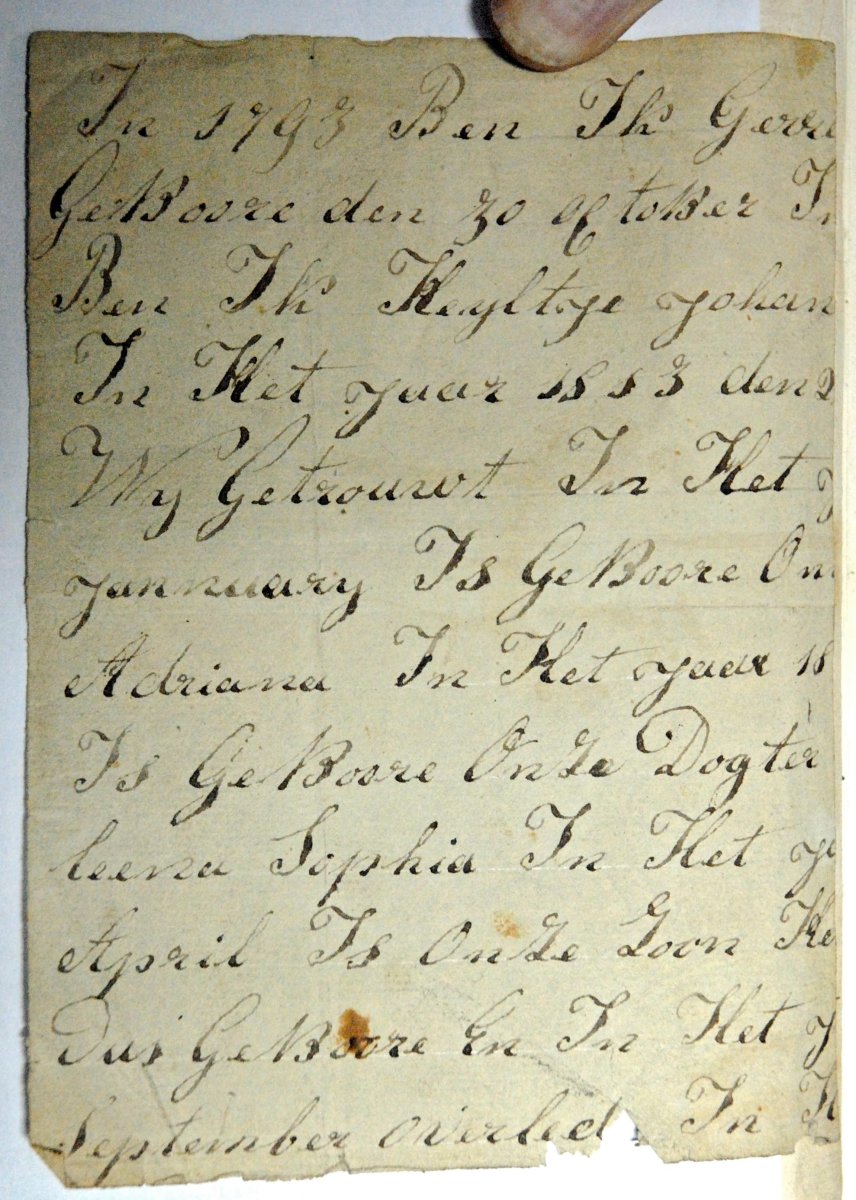 In 1793 Ben Ik Gerri
GeBoore den 30 october In
Ben Ik Heyltje johan
In Het jaar 1813 den 2
Wy Getrouwt In Het j
jannuary Is GeBoore On
Adriana In Het jaar 18
Is GeBoore Onze Dogter
leena Sophia In Het ja
April Is Onze Zoon He
Dus GeBoore En In Het j
September overled In H